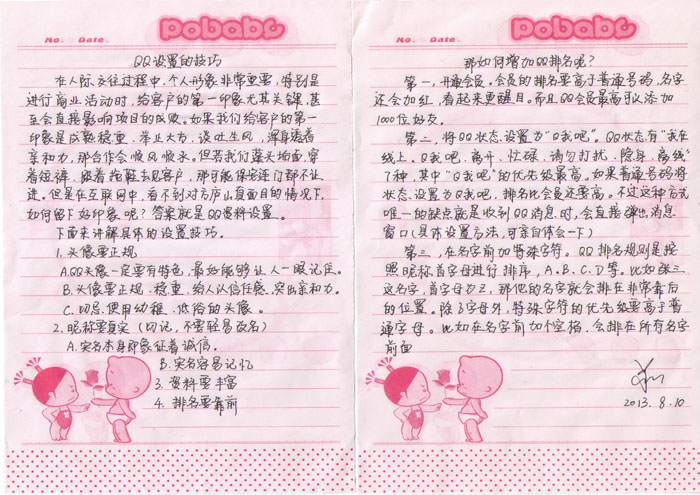 Pobabe
No. Date.
QQ设置的技巧
在人际交往过程中,个人形象非常重要,特别是
进行商业活动时,给客户的第一印象尤其关键,甚
至会直接影响项目的成败。如果我们给客户的第一
印象是成熟稳重、举止大方、谈吐生风,浑身透着
亲和力,那合作会顺风顺水。但若我们蓬头垢面,穿
着短裤、趿着拖鞋去见客户,那可能保安连门都不让
进。但是在互联网中,看不到对方庐山真面目的情况下,
如何留下好印象呢?答案就是QQ资料设置。
下面来讲解具体的设置技巧。
1.头像要正规
A.QQ头像一定要有特色,最好能够让人一眼记住。
B.头像要正规、稳重,给人以信任感,突出亲和力。
C.切忌使用幼稚、低俗的头像。
2.昵称要真实(切记,不要轻易改名)
A.实名本身即象征着诚信。
B.实名容易记忆
3.资料要丰富
4.排名要靠前
Pobabe
No. Date.
那如何增加QQ排名呢?
第一,开通会员。会员的排名要高于普通号码,名字
还会加红,看起来更醒目。而且QQ会员最高可以添加
1000位好友。
第二,将QQ状态设置为“Q我吧”。QQ状态有“我在
线上、Q我吧、离开、忙碌、请勿打扰、隐身、离线”
7种,其中“Q我吧”的优先级最高。如果普通号码将
状态设置为Q我吧,排名比会员还要高。不过这种方式
唯一的缺点就是收到QQ消息时,会直接弹出消息
窗口(具体设置方法,可亲自体会一下)
第三,在名字前加特殊字符。QQ排名规则是按
照昵称首字母进行排序,A、B、C、D等。比如张三
这名字,首字母为Z,那他的名字就会排在非常靠后
的位置。除了字母外,特殊字符的优先级要高于普
通字母。比如在名字前加个空格,会排在所有名字
前面
2013.8.10